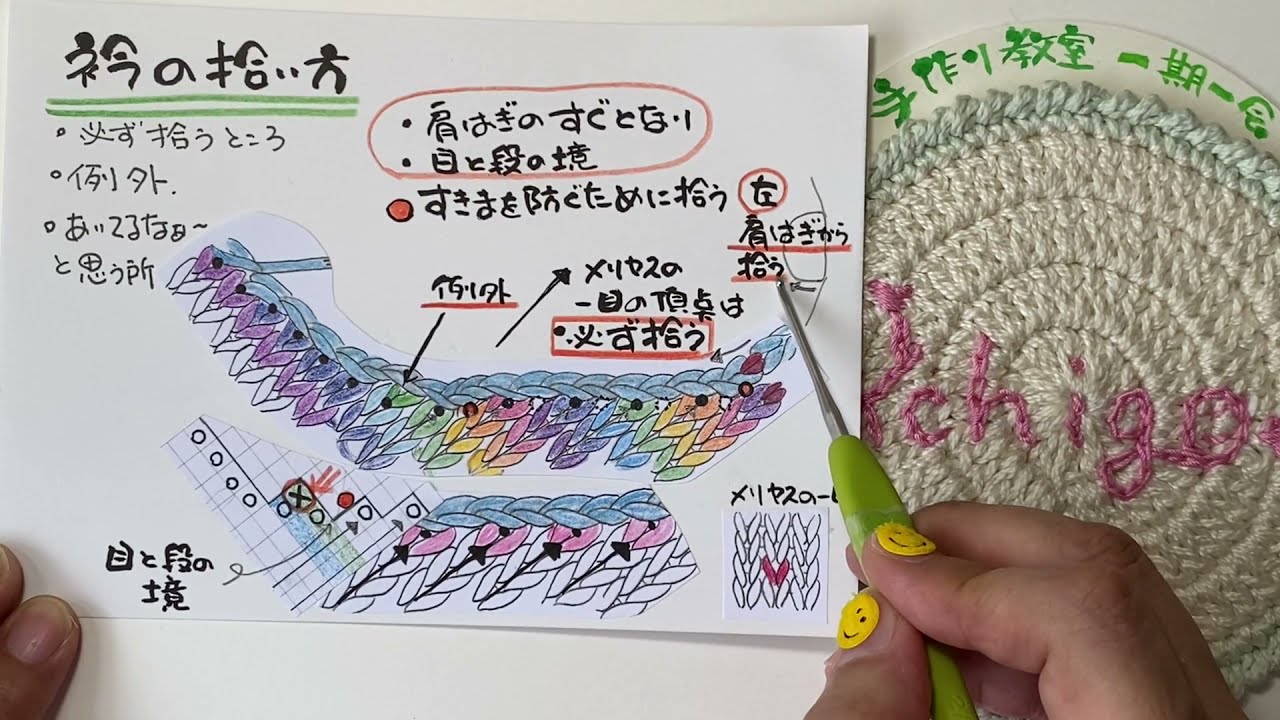 衿の拾い方
• 必ず拾うところ
• 例外.
• あいてるなぁ〜
と思う所
• 肩はぎのすぐとなり
• 目と段の境
すきまを防ぐために拾う
左
肩はぎから
拾う
例外
メリヤスの
一目の頂点は
•必ず拾う
目と段の
境
メリヤスの一
手作り教室 一期一会
Ichigo